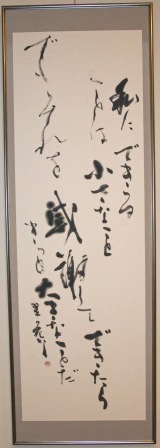 私にできる
ことは小さなこと
でもそれを感謝してできたら
きっと大きなことだ